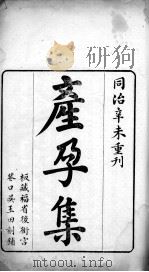 同治辛未重刊
產孕集
板藏福省後街宫
巷口吴玉田刻鋪